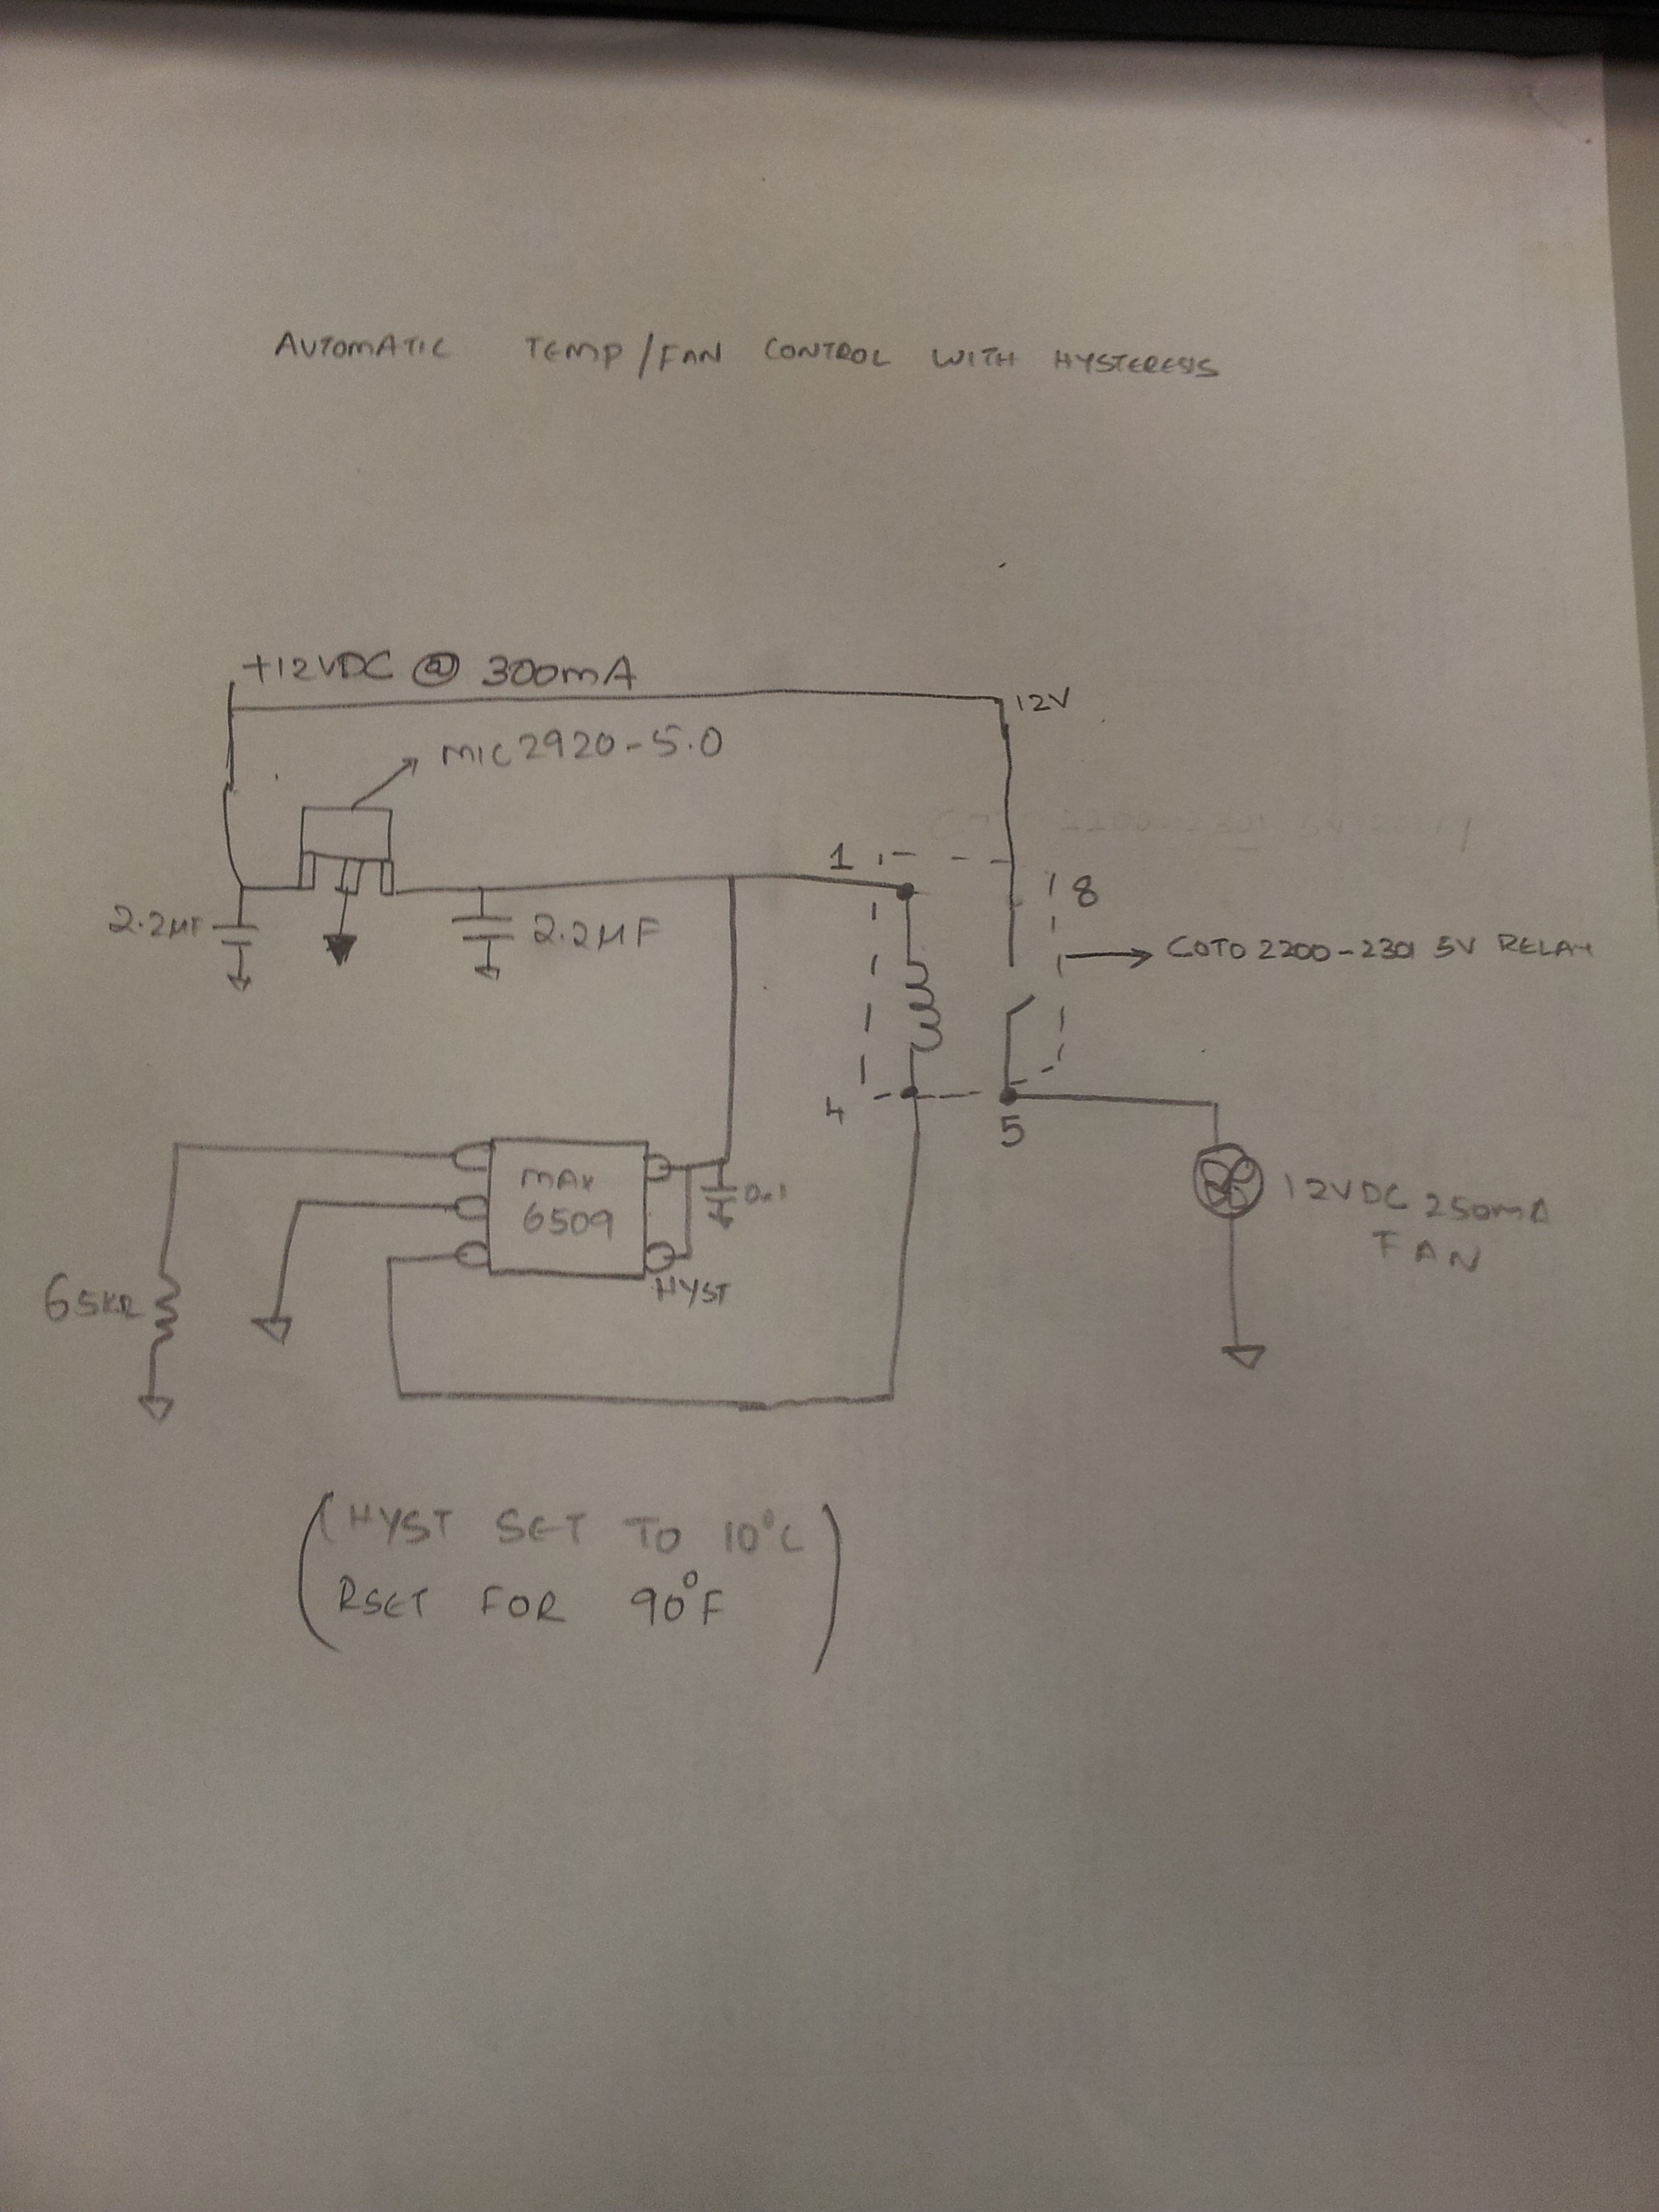 AUTOMATIC TEMP/FAN CONTROL WITH HYSTERESIS
+12VDC @ 300mA
12V
MIC2920-5.0
1
8
2.2µF
2.2µF
COTO 2200-2301 5V RELAY
4
5
MAX
6509
0.1
12VDC 250mA
FAN
65KΩ
HYST
(HYST SET TO 10°C
RSET FOR 90°F)